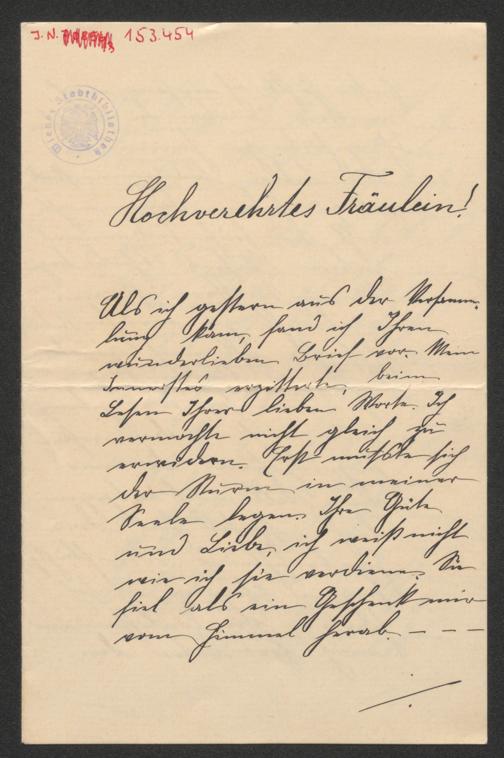 J. N. 153.454
Wiener Stadtbibliothek
Hochverehrtes Fräulein!
Als ich gestern aus der Versamm-
lung kam, fand ich Ihren
wunderlieben Brief vor. Mein
Innerstes erzitterte, beim
Lesen Ihrer lieben Worte. Ich
vermochte nicht gleich zu
erwidern. Erst mußte sich
der Sturm in meiner
Seele legen. Ihre Güte
und Liebe, ich weiß nicht
wie ich sie verdiene. Sie
fiel als ein Geschenk mir
vom Himmel herab. – – –